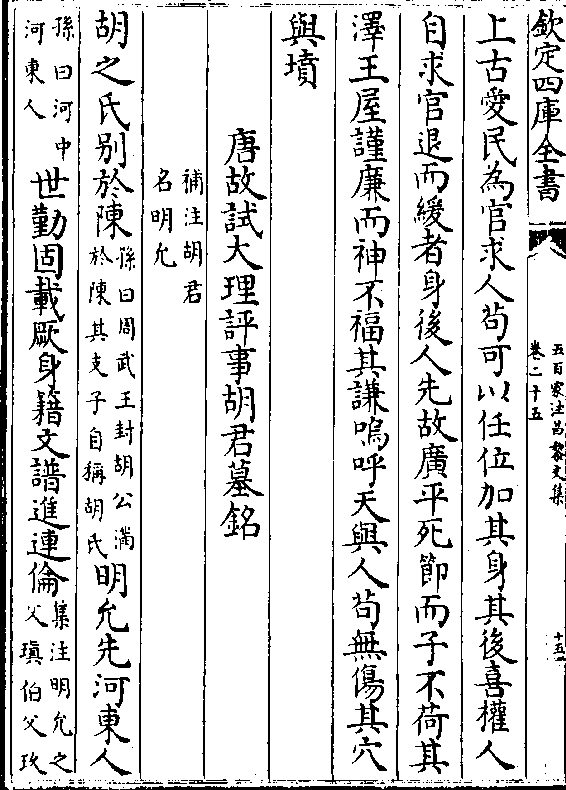 欽定四庫全書
五百家注昌黎文集
卷二十五
十五
上古愛民為官求人苟可以任位加其身其後喜權人
自求官退而緩者身後人先故廣平死節而子不荷其
澤王屋謹廉而神不福其謙嗚呼天與人苟無傷其穴
與墳
唐故試大理評事胡君墓銘
補注胡君
名明允
胡之氏别於陳
孫曰周武王封胡公滿
於陳其支子自稱胡氏
明允先河東人
孫曰河中
河東人
世勤固載厥身籍文譜進連倫
集注明允之
父瑱伯父玫